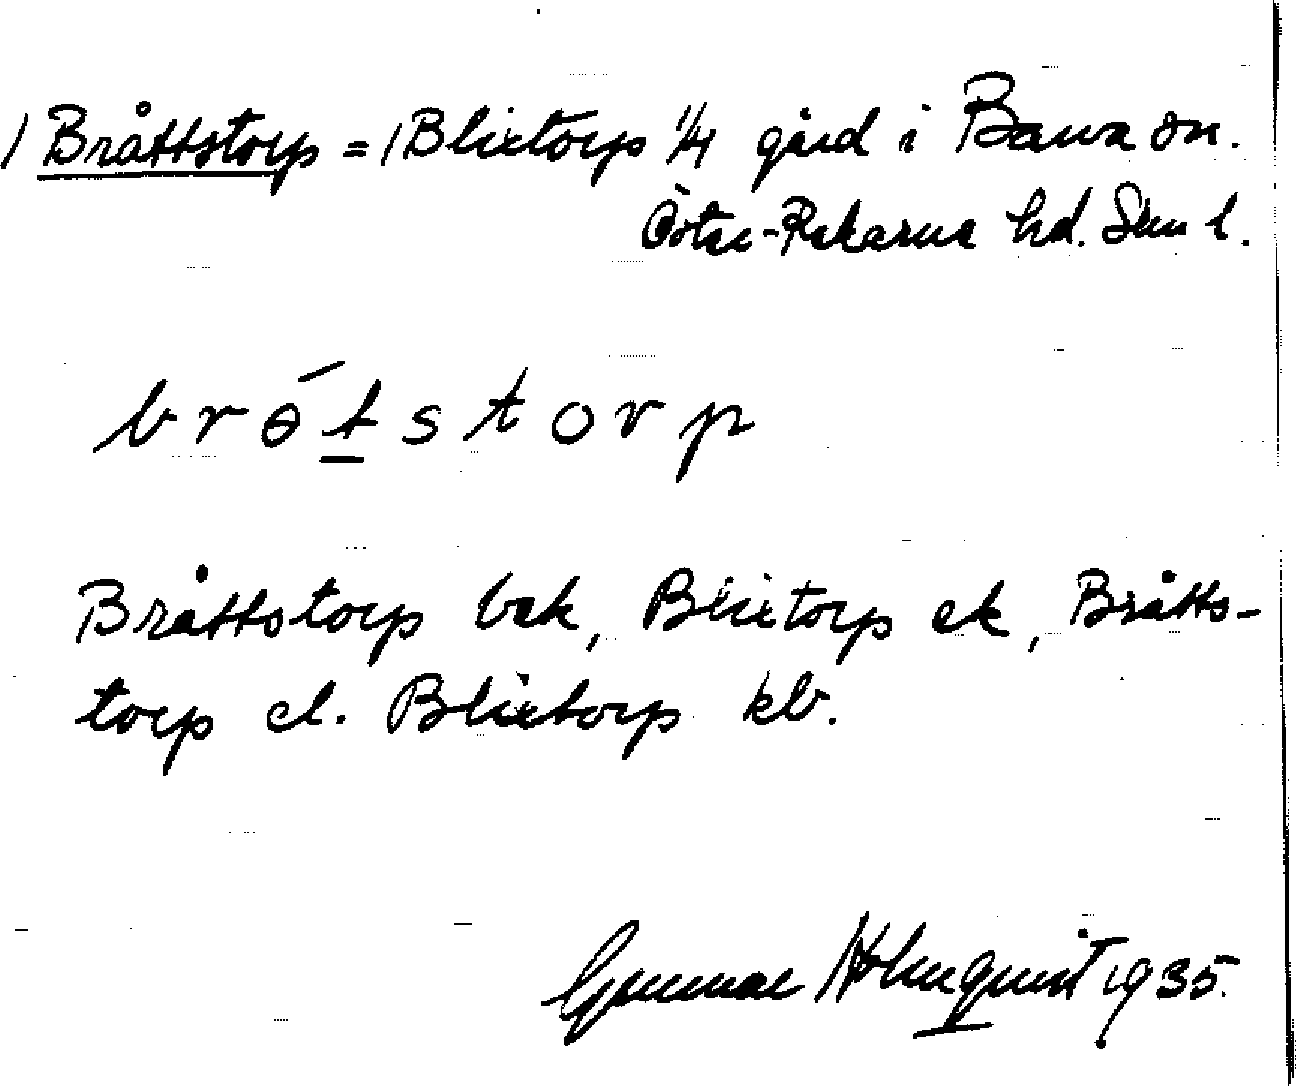 / Bråttstorp = / Blixtorp 1/4 gård i Barva sn.
Öster-Rekarne hd. Södm l.
brɵ́tstorp
Bråttstorp bek, Blixtorp ek, Brätts-
torp el. Blixtorp kb.
Gunnar Holmqvist 1935.